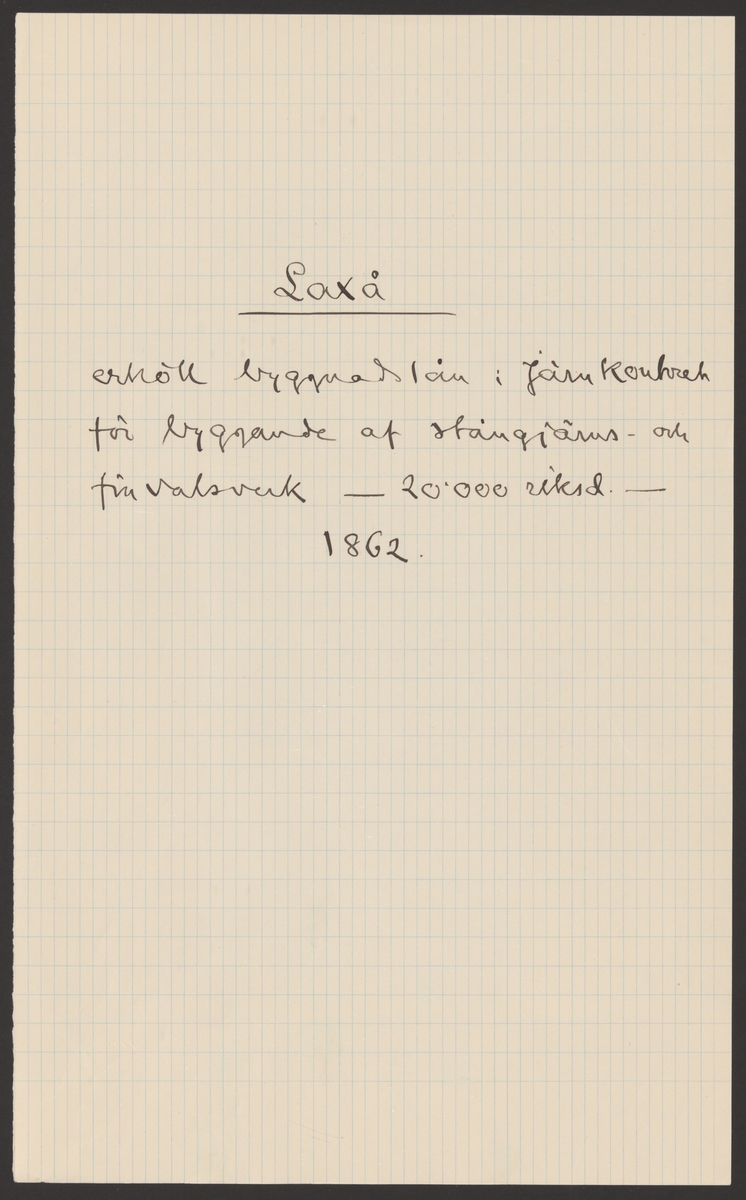 Laxå
erhöll byggnadslån i Järnkontoret
för byggande af stångjärns- och
finvalsverk — 20.000 riksd. —
1862.